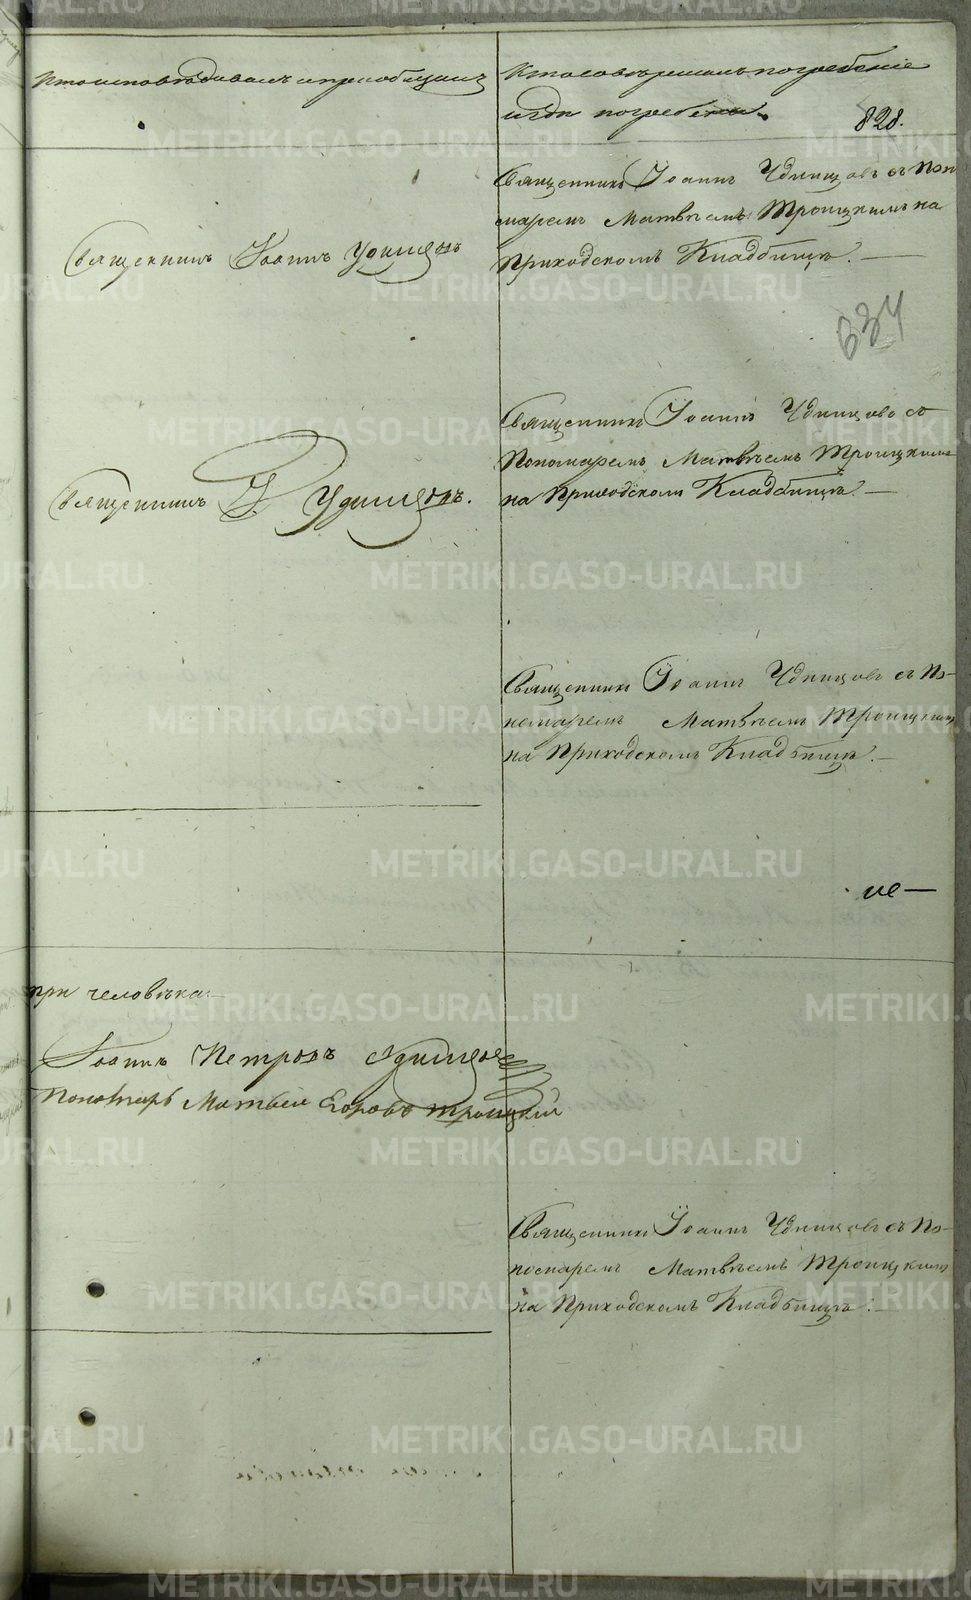 Кто исповѣдывалъ и пріобщалъ
Кто совершалъ погребеніе
и гдѣ погребены.
828.
Священникъ Іоаннъ Удинцовъ съ Поно
маремъ Матвѣемъ Троицкимъ на
Приходскомъ Кладбищѣ.
Священникъ Іоаннъ Удинцовъ
634
Священникъ Іоаннъ Удинцовъ съ
Пономаремъ Матвѣемъ Троицкимъ
на Приходскомъ Кладбищѣ.
Священникъ І. Удинцовъ.
Священникъ Іоаннъ Удинцовъ съ По-
номаремъ Матвѣемъ Троицкимъ
на Приходскомъ Кладбищѣ.
при человѣка
Іоаннъ Петровъ Удинцовъ
Пономарь Матвѣй Егоровъ Троицкій
Священникъ Іоаннъ Удинцовъ съ По-
номаремъ Матвѣемъ Троицкимъ
на Приходскомъ Кладбищѣ.
METRIKI.GASO-URAL.RU